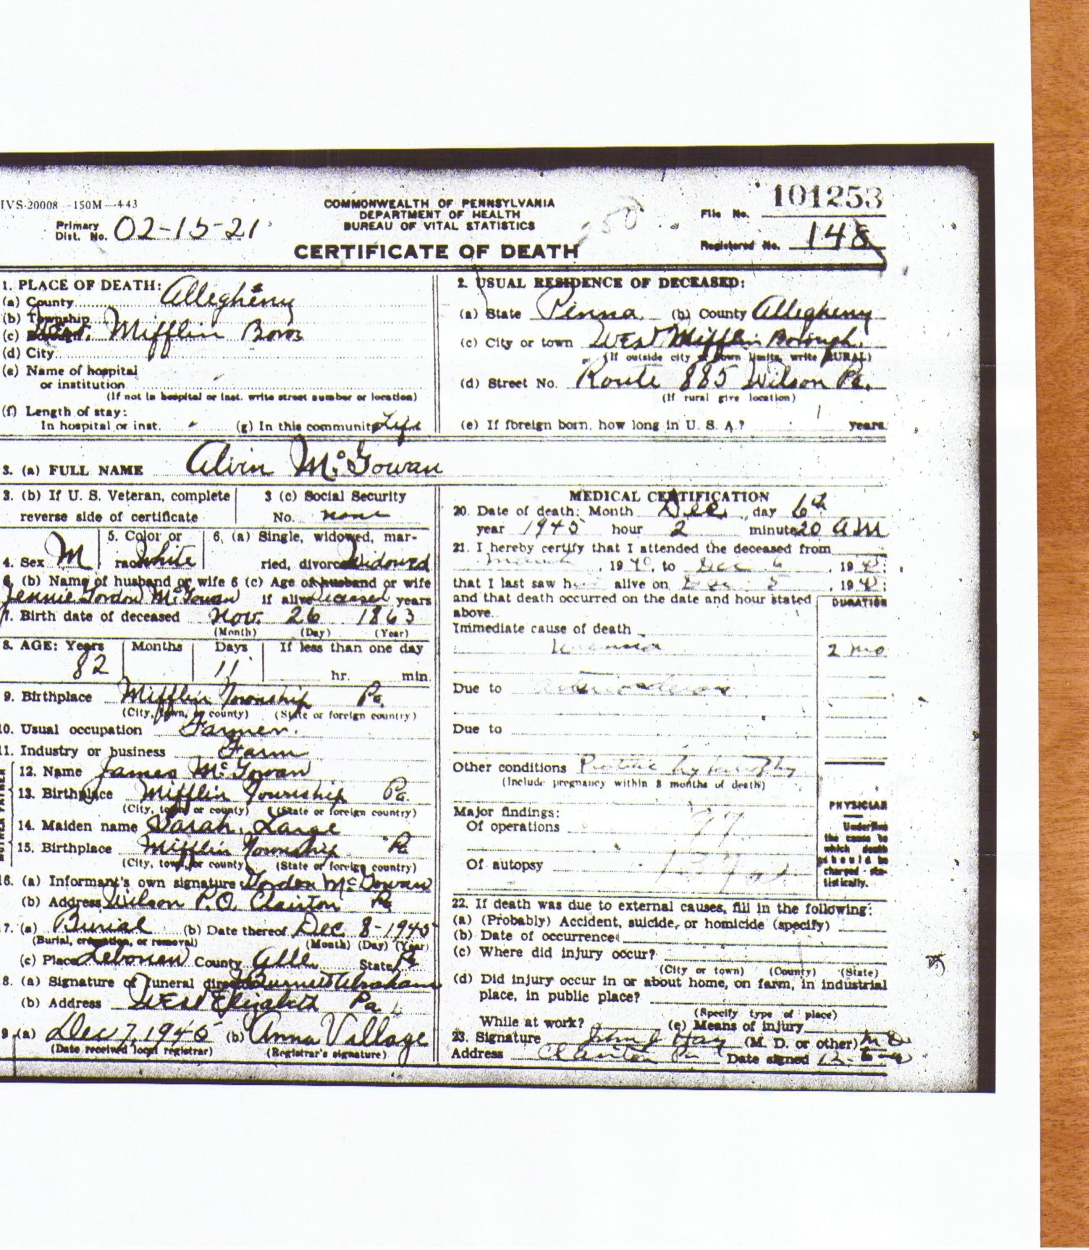 IVS-20008 -150M-4-43
COMMONWEALTH OF PENNSYLVANIA
DEPARTMENT OF HEALTH
BUREAU OF VITAL STATISTICS
CERTIFICATE OF DEATH
Primary Dist. No. 02-15-21
50
File No. 101253
Registered No. 148
1. PLACE OF DEATH:
(a) County Allegheny
(b) Township
(c) Mifflin Boro
(d) City
(e) Name of hospital
or institution
(If not in hospital or inst. write street number or location)
(f) Length of stay:
In hospital or inst. (g) In this community Life
2. USUAL RESIDENCE OF DECEASED:
(a) State Penna (b) County Allegheny
(c) City or town West Mifflin Borough
(If outside city or town limits, write RURAL)
(d) Street No. Route 885 Wilson Pa.
(If rural give location)
(e) If foreign born, how long in U. S. A.? years
3. (a) FULL NAME Alvin McGowan
3. (b) If U. S. Veteran, complete
reverse side of certificate
3 (c) Social Security
No. none
4. Sex M
5. Color or
race White
6. (a) Single, widowed, mar-
ried, divorced Widowed
6. (b) Name of husband or wife
Jennie Gordon McGowan
6 (c) Age of husband or wife
if alive deceased years
7. Birth date of deceased Nov. 26 1863
(Month) (Day) (Year)
8. AGE: Years Months Days If less than one day
82 11 hr. min.
9. Birthplace Mifflin Township Pa.
(City, town, or county) (State or foreign country)
10. Usual occupation Farmer.
11. Industry or business Farm
12. Name James McGowan
13. Birthplace Mifflin Township Pa.
(City, town or county) (State or foreign country)
14. Maiden name Sarah Large
15. Birthplace Mifflin Township Pa
(City, town, or county) (State or foreign country)
16. (a) Informant's own signature Gordon McGowan
(b) Address Wilson P.O. Clairton Pa
17. (a) Burial (b) Date thereof Dec 8-1945
(Burial, cremation, or removal) (Month) (Day) (Year)
(c) Place Lebanon County Alle. State Pa
18. (a) Signature of funeral director
(b) Address West Elizabeth Pa.
19 (a) Dec 7, 1945 (b) Anna Village
(Date received local registrar) (Registrar's signature)
MEDICAL CERTIFICATION
20. Date of death: Month Dec. day 6th
year 1945 hour 2 minute 20 AM
21. I hereby certify that I attended the deceased from
March, 1940, to Dec 6, 19
that I last saw h alive on Dec 5, 19
and that death occurred on the date and hour stated
above.
DURATION
Immediate cause of death
Uremia 2 mo
Due to
Due to
Other conditions
(Include pregnancy within 3 months of death)
Major findings:
Of operations
Of autopsy
PHYSICIAN
Underline
the cause to
which death
should be
charged sta-
tistically.
22. If death was due to external causes, fill in the following:
(a) (Probably) Accident, suicide, or homicide (specify)
(b) Date of occurrence
(c) Where did injury occur?
(City or town) (County) (State)
(d) Did injury occur in or about home, on farm, in industrial
place, in public place?
(Specify type of place)
While at work? (e) Means of injury
23. Signature (M. D. or other) M D
Address Clairton Pa Date signed